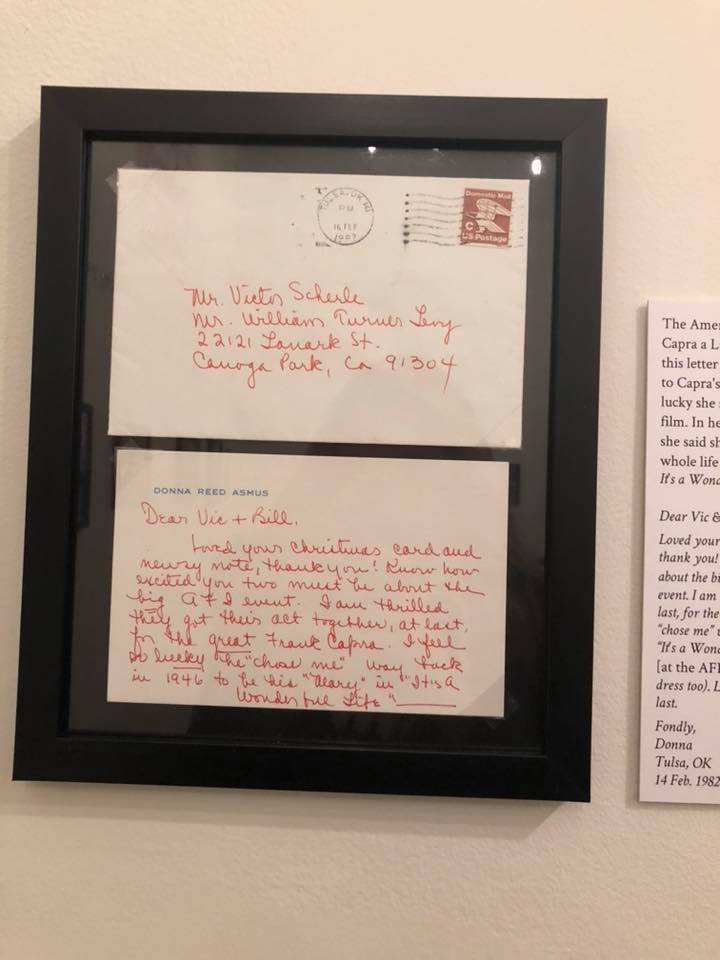 TULSA, OK
PM
16 FEB
Domestic Mail
C
US Postage
Mr. Victor Scherle
Mr. William Turner Levy
22121 Lanark St.
Canoga Park, Ca 91304
DONNA REED ASMUS
Dear Vic + Bill,
Loved your Christmas card and
newsy note, thank you! Know how
excited you two must be about the
big AFI event. I am thrilled
they got their act together, at last,
for the great Frank Capra. I feel
so lucky he "chose me" way back
in 1946 to be his "Mary" in "It's A
Wonderful Life"
The Amer
Capra a L
this letter
to Capra's
lucky she
film. In he
she said sh
whole life
It's a Wond
Dear Vic &
Loved your
thank you!
about the bi
event. I am
last, for the
"chose me"
"It's a Wond
[at the AFI
dress too). L
last.
Fondly,
Donna
Tulsa, OK
14 Feb. 1982